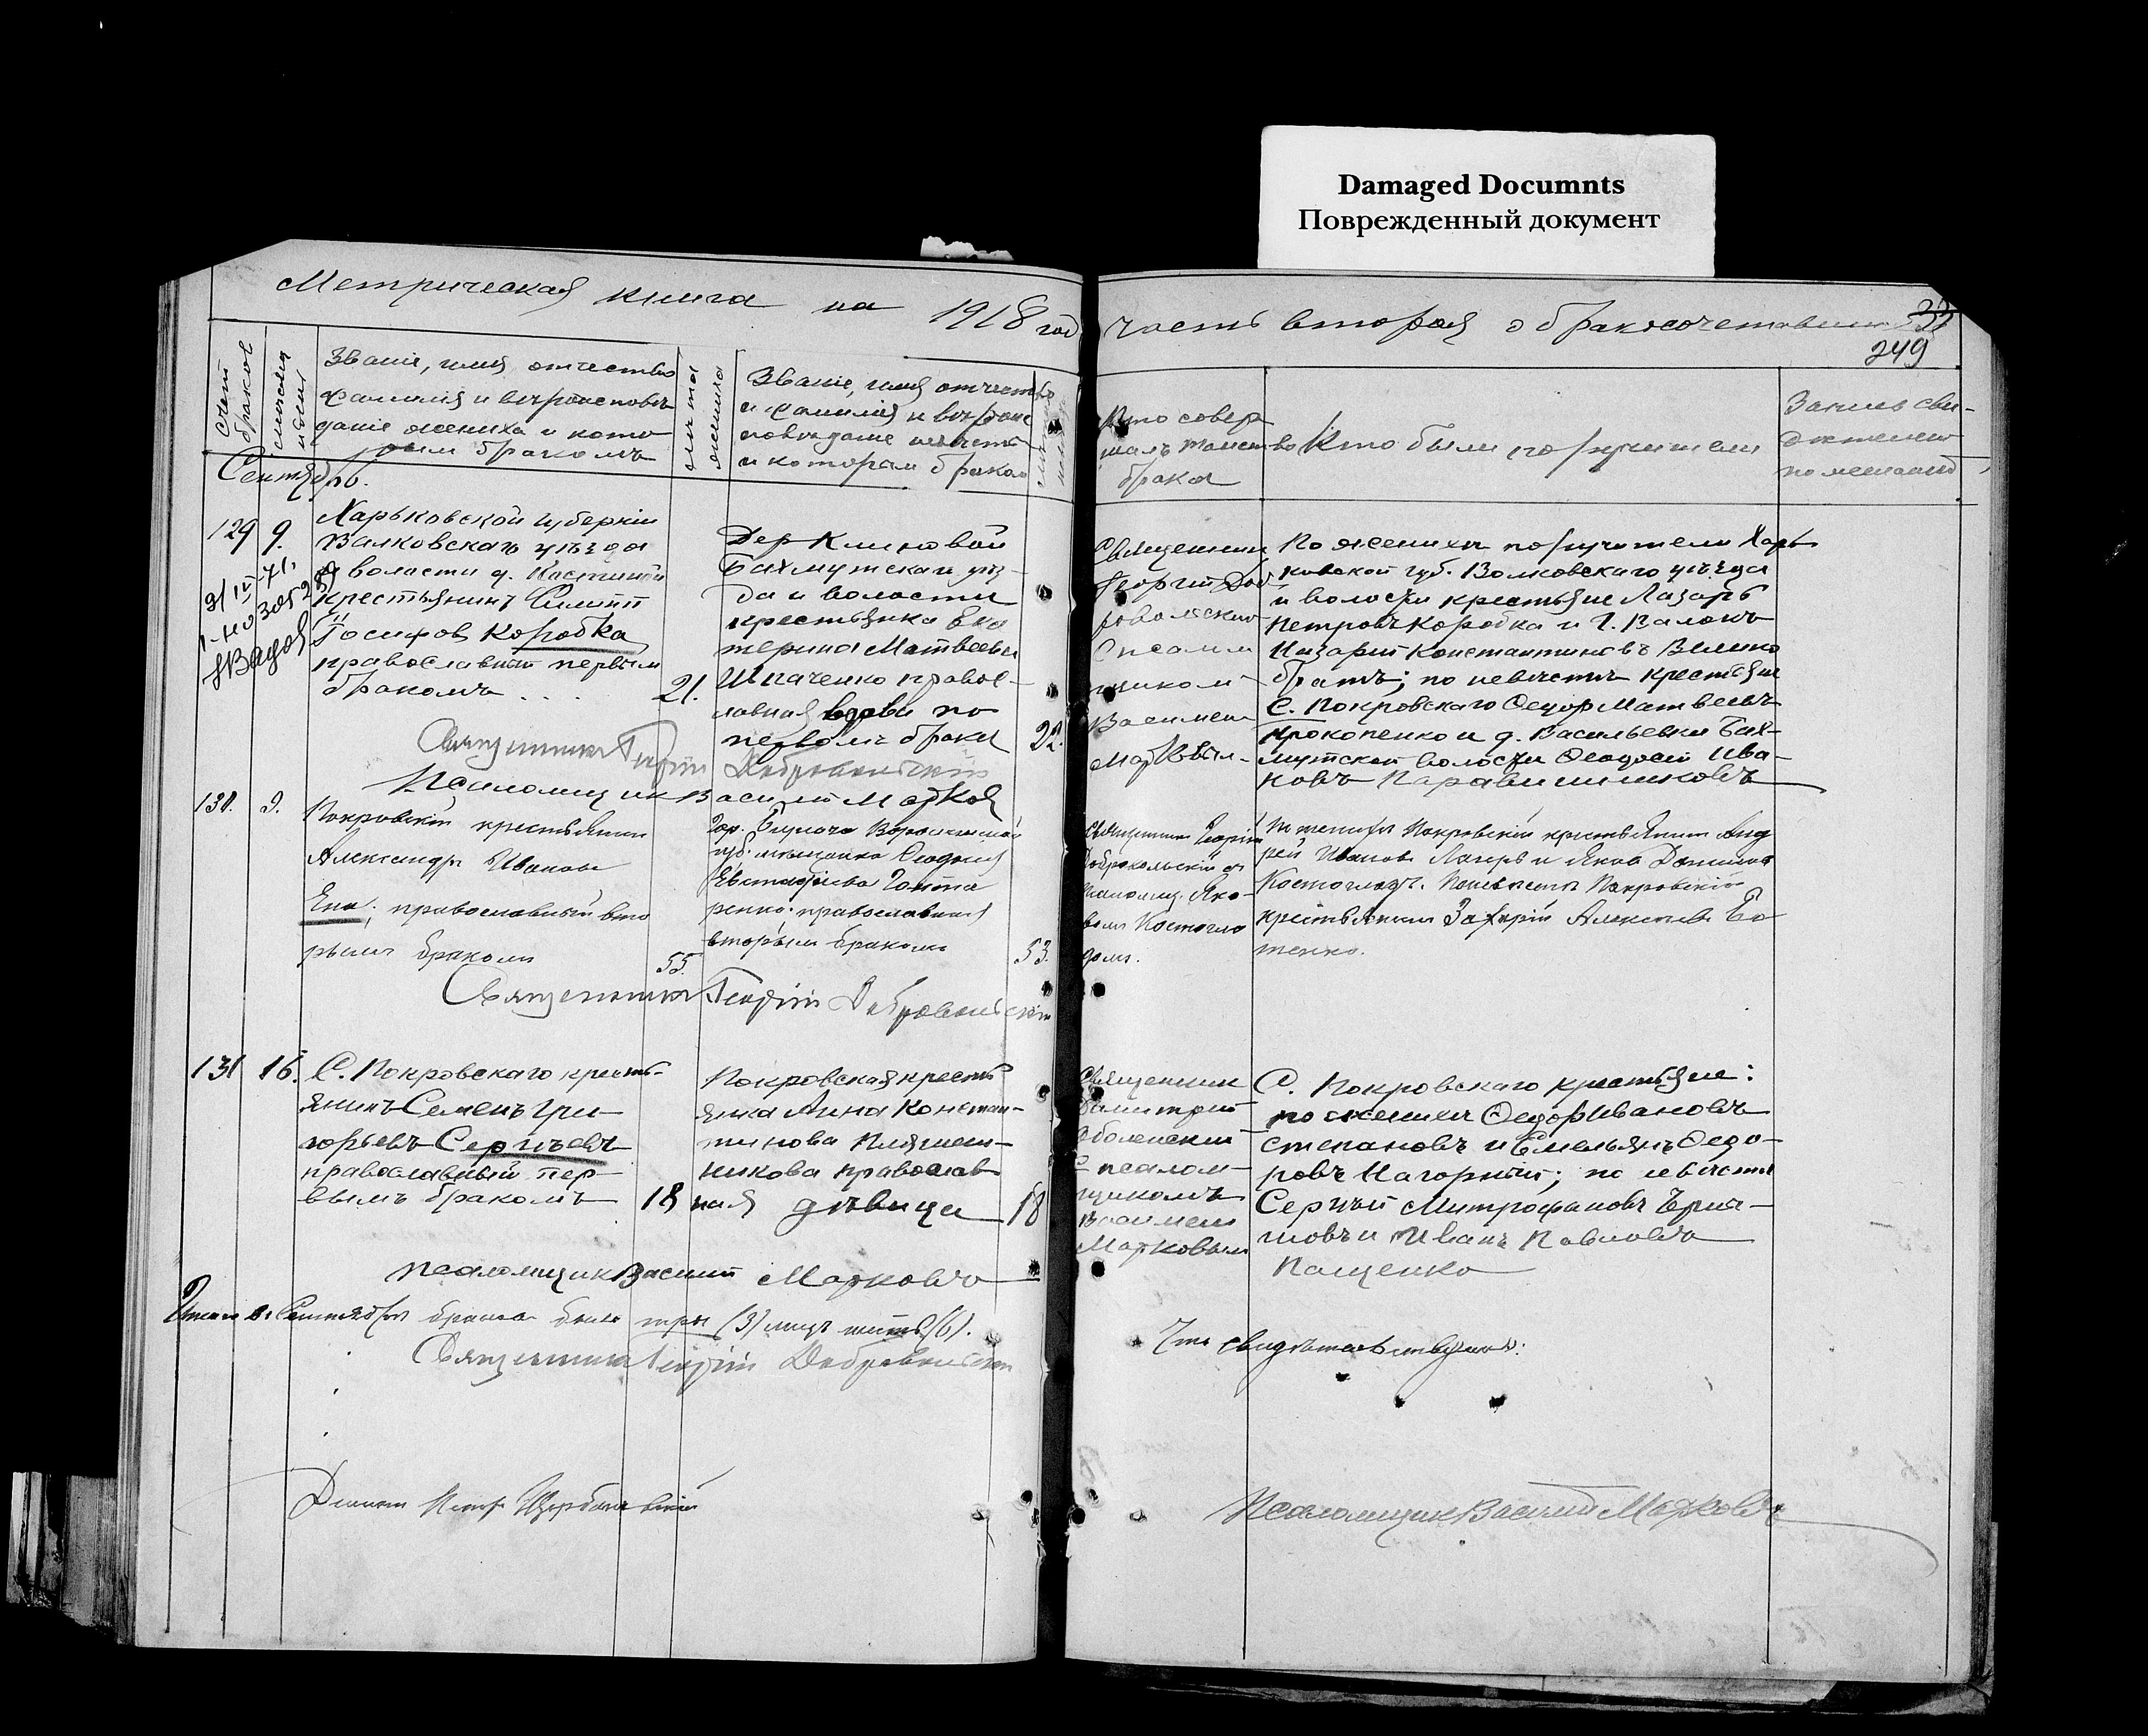 Damaged Documnts
Поврежденный документ
Метрическая книга на 1918 год
часть вторая о бракосочетавшихся
249
Счет браков
Званіе, имя, отчество
фамилія и вѣроисповѣ
даніе жениха и кото
рым бракомъ
лѣта жениха
Званіе, имя отчество
и фамилія и вѣроис
повѣданіе невѣсты
и которым браком
Кто совер
шалъ таинство
брака
Кто были поручители
Запись сви-
Сентябрь.
129 9.
Харьковской губерніи
Валковскаго уѣзда
и волости д.
крестьянинъ Филипп
Іосифов Коробка
православный первым
бракомъ . . . 21.
Дер Клиновой
Бахмутскаго уѣз-
да и волости
крестьянка Ека
терина Матвеева
Шпаченко правос-
лавная вдова по
первомъ браке 22.
Священник
Георгій Доб
ровольский
С псалом
щиком
Василием
Марковым
По женихе поручители Харь
ковской губ. Волковскаго уѣзда
и волости крестьяне Лазарь
Петровъ Коробка и г. Валокъ
Назарий Константиновъ Велико
братъ; по невѣстѣ крестьяне
С. Покровскаго Федор Матвеевъ
Прокопенко и д. Васильевки Бах-
мутской волости Феодосий Ива-
новъ
Священникъ Георгій Добровольскій
Псаломщик Василий Марков
130. 9.
Покровскій крестьянин
Александръ Иванов
Ена; православный вто
рымъ бракомъ 55.
Гор. Бирюча Воронежской
губ. мѣщанка Феодосия
Евстафіева Гонта
ренко православная
вторым бракомъ 53.
Священник Георгій
Добровольскій съ
псаломщ. Яко-
вомъ Костогло
домъ.
По женихе Покровскій крестьянин Анд
рей Иванов Лазарь и Яков Данилов
Костоглодъ. По невѣсте Покровскій
крестьянин Захарій Алексеев Бо
тенко.
Священникъ Георгій Добровольскій
131 16.
С. Покровскаго кресть-
янинъ Семенъ Гри-
горьевъ Сергѣевъ
православный пер-
вымъ бракомъ 18
Покровская кресть
янка Анна Констан-
тинова
никова православ
ная дѣвица 18
Священник
Димитрий
Оболенский
С псалом-
щикомъ
Василием
Марковым
С. Покровскаго крестьяне:
по женихе Федор Ивановъ
Степановъ и Емельянъ Федо-
ровъ Нагорный; по невѣсте
Сергѣй Митрофановъ
и Иванъ Павловъ
Пащенко
псаломщик Василий Марковъ
Итого в Сентябре браков было три (3) лицъ шесть (6).
Священникъ Георгій Добровольскій
Что свидѣтельствуемъ:
Псаломщик Василий Марковъ